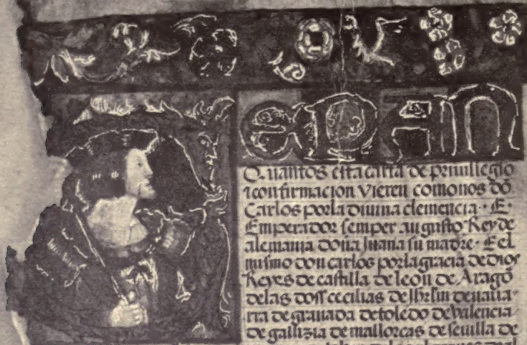 SEPAN
Quantos esta carta de preuillegio
⁊ confirmacion vieren como nos dō
Carlos por la diuina clemencia · E ·
Emperador semper augusto Rey de
alemania doña juana su madre · E el
mismo don carlos por la gracia de dios
Reyes de castilla de leon de Arago
delas dos cecilias de Jhrlm de naua
rra de granada de toledo de valencia
de gallizia de mallorcas de seuilla de